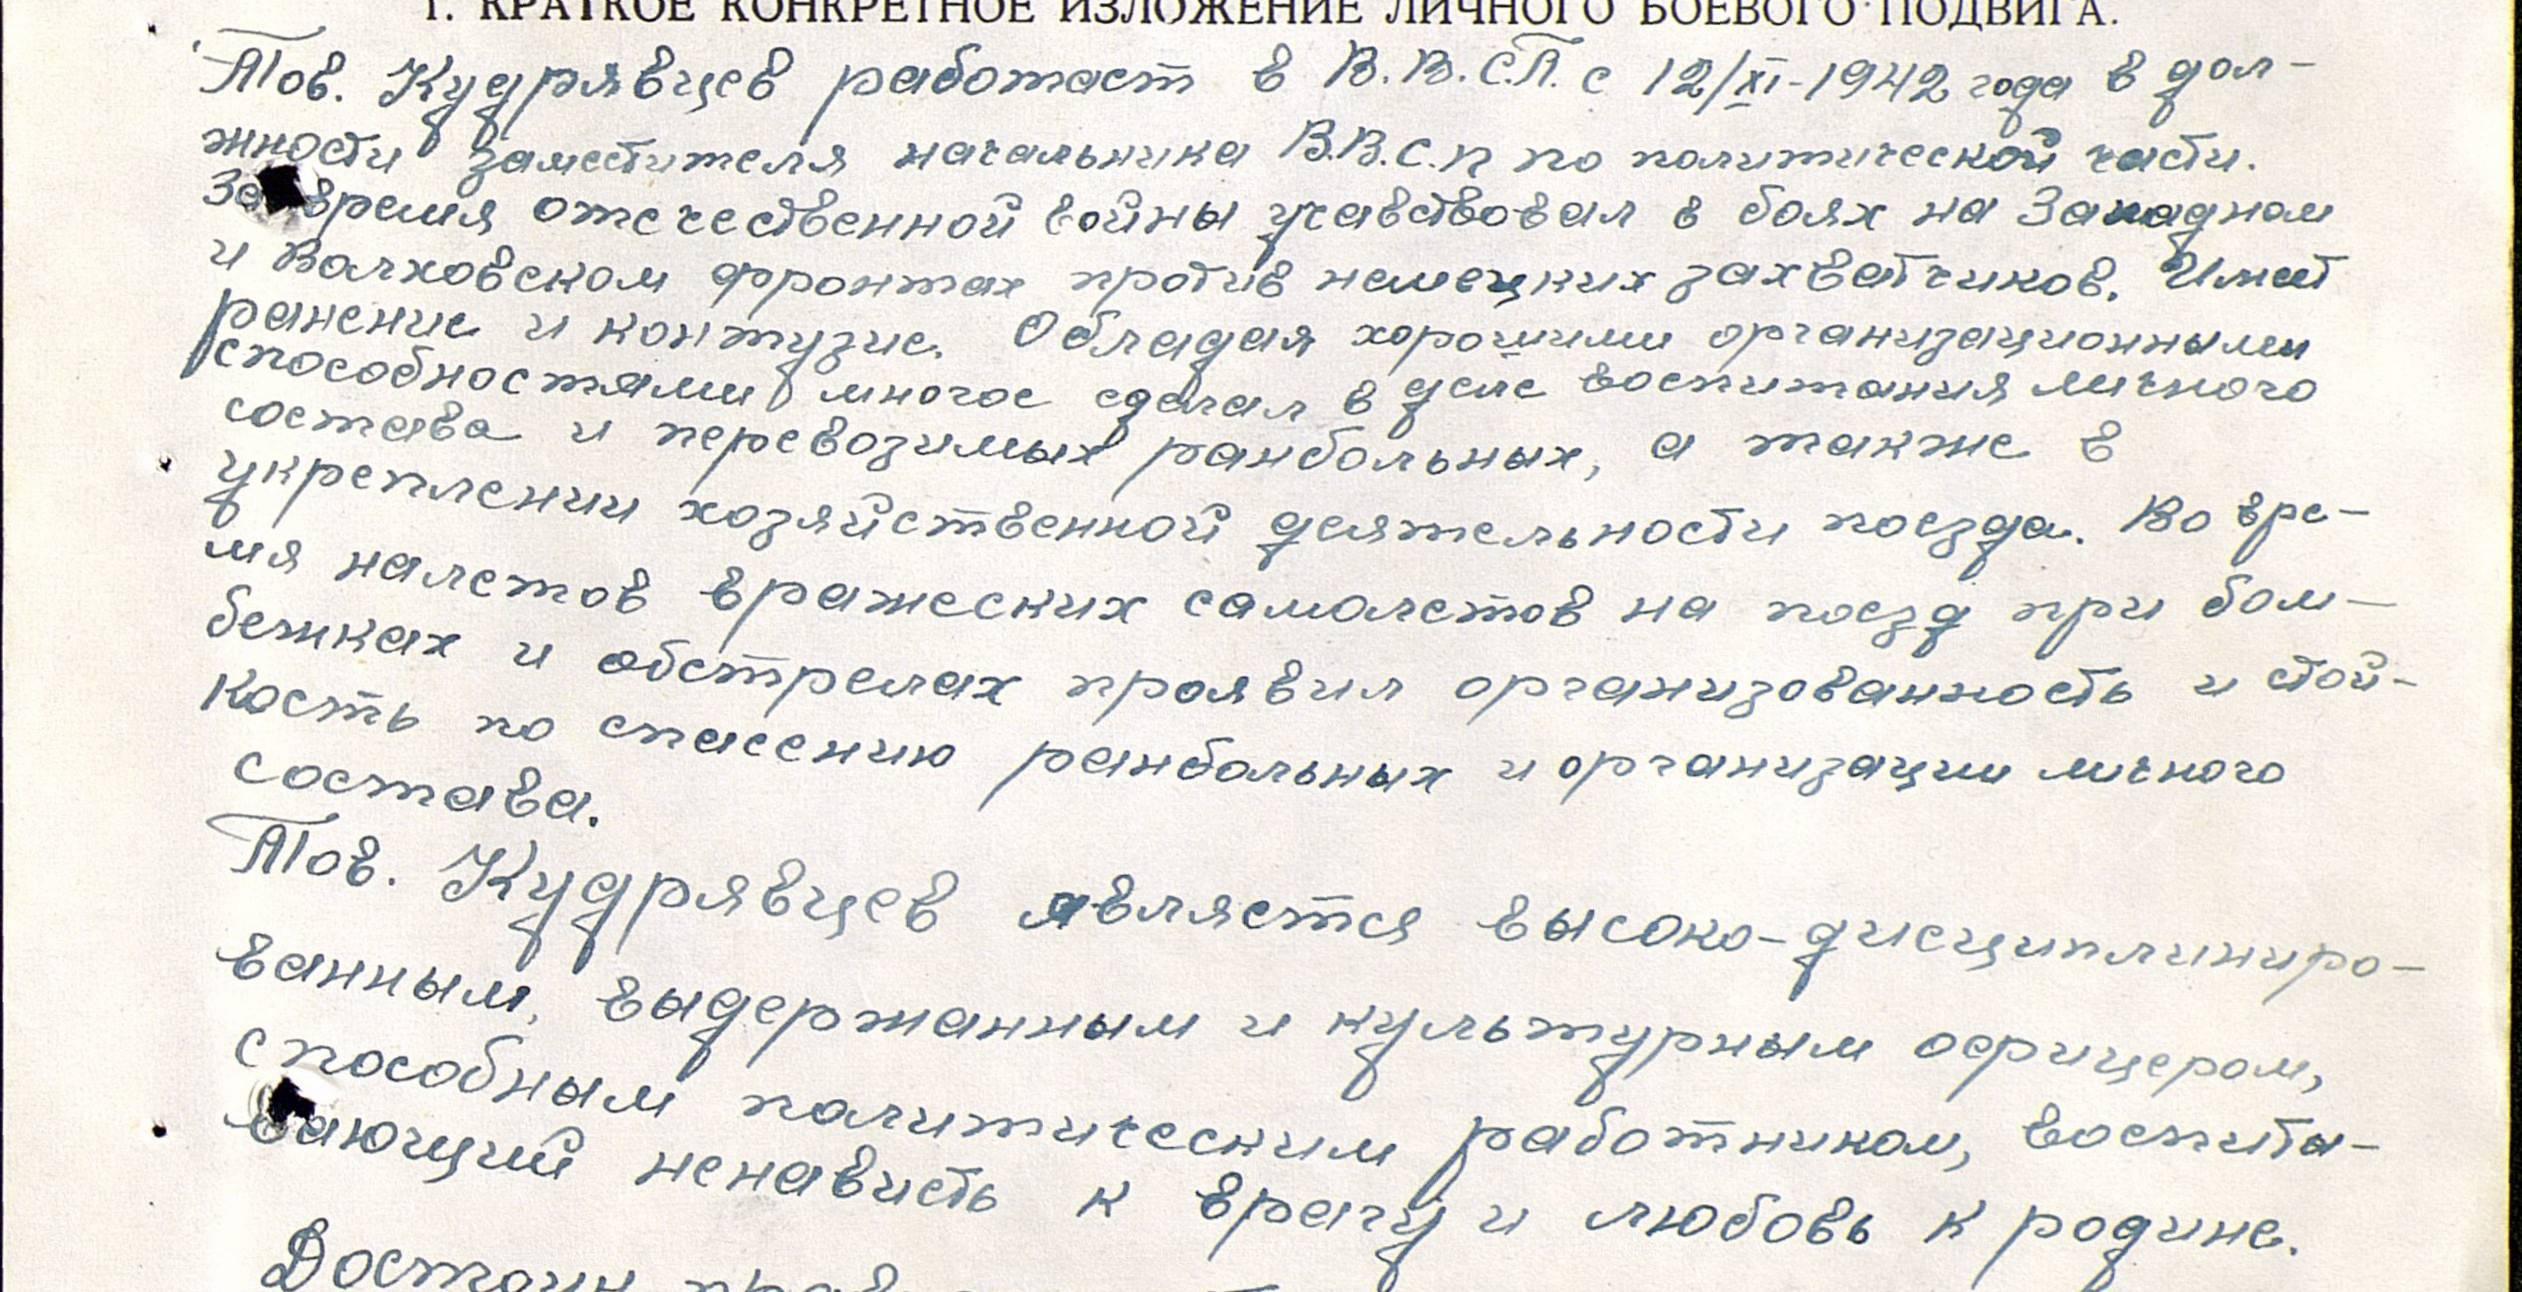 1. КРАТКОЕ КОНКРЕТНОЕ ИЗЛОЖЕНИЕ ЛИЧНОГО БОЕВОГО ПОДВИГА.
Тов. Кудрявцев работает в В.В.С.П. с 12/XI-1942 года в дол-
жности заместителя начальника В.В.С.П по политической части.
За время отечественной войны учавствовал в боях на Западном
и Волховском фронтах против немецких захватчиков. Имеет
ранение и контузие. Обладая хорошими организационными
способностями многое сделал в деле воспитания личного
состава и перевозимых ранбольных, а также в
укреплении хозяйственной деятельности поезда. Во вре-
мя налетов вражеских самолетов на поезд при бом-
бежках и обстрелах проявил организованность и стой-
кость по спасению ранбольных и организации личного
состава.
Тов. Кудрявцев является высоко-дисциплиниро-
ванным, выдержанным и культурным офицером,
способным политическим работником, воспиты-
вающий ненависть к врагу и любовь к родине.
Достоин